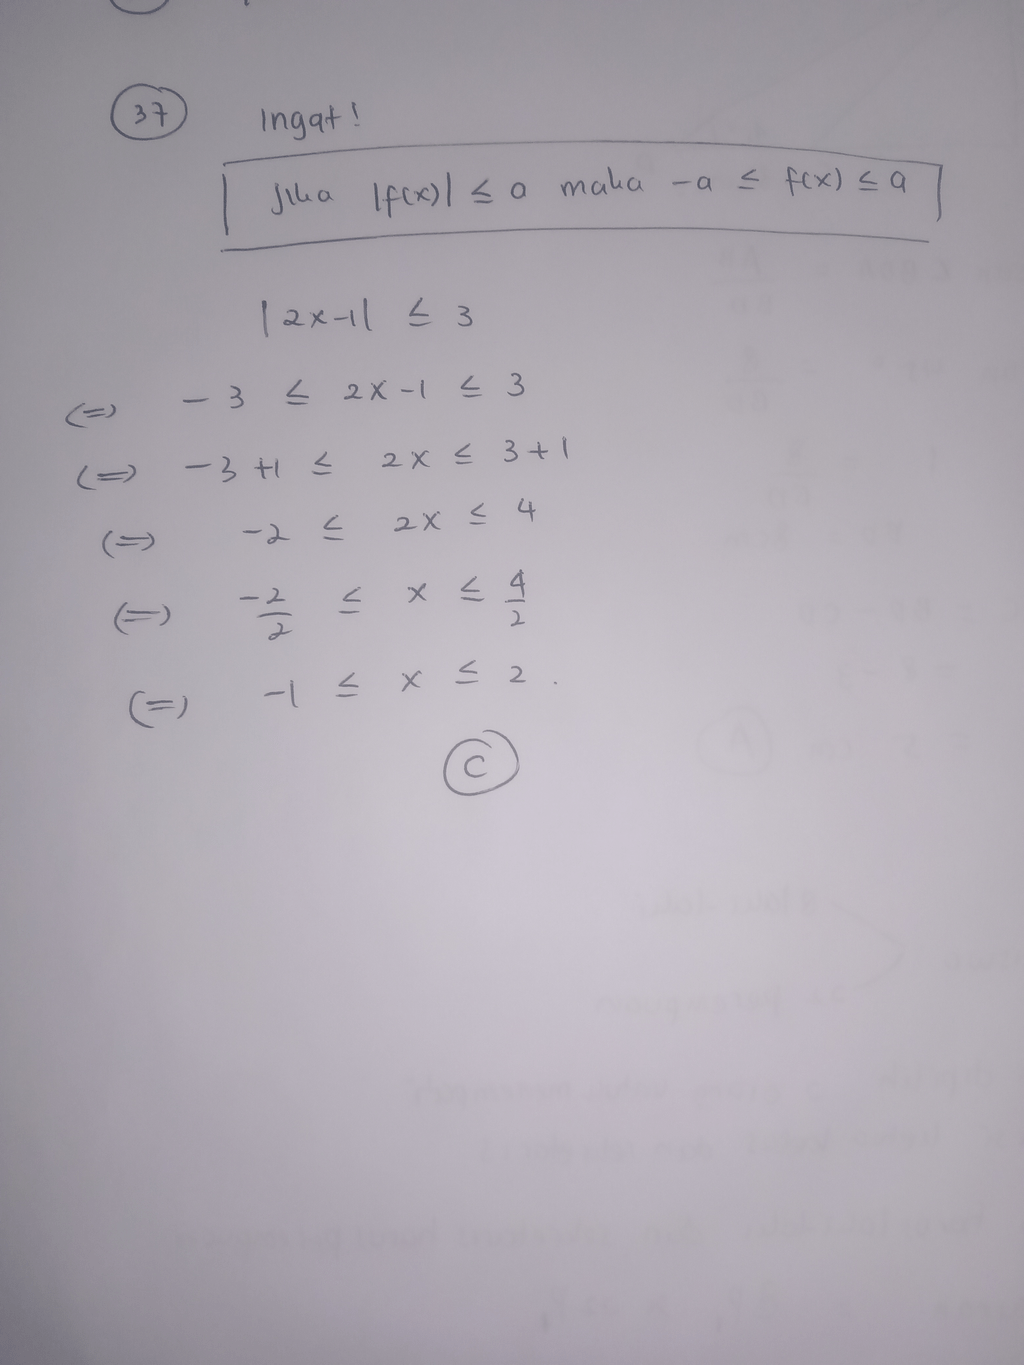 37 Ingat!
Jika |f(x)| ≤ a maka -a ≤ f(x) ≤ a
|2x-1| ≤ 3
(=) -3 ≤ 2x-1 ≤ 3
(=) -3+1 ≤ 2x ≤ 3+1
(=) -2 ≤ 2x ≤ 4
(=) -2/2 ≤ x ≤ 4/2
(=) -1 ≤ x ≤ 2.
C